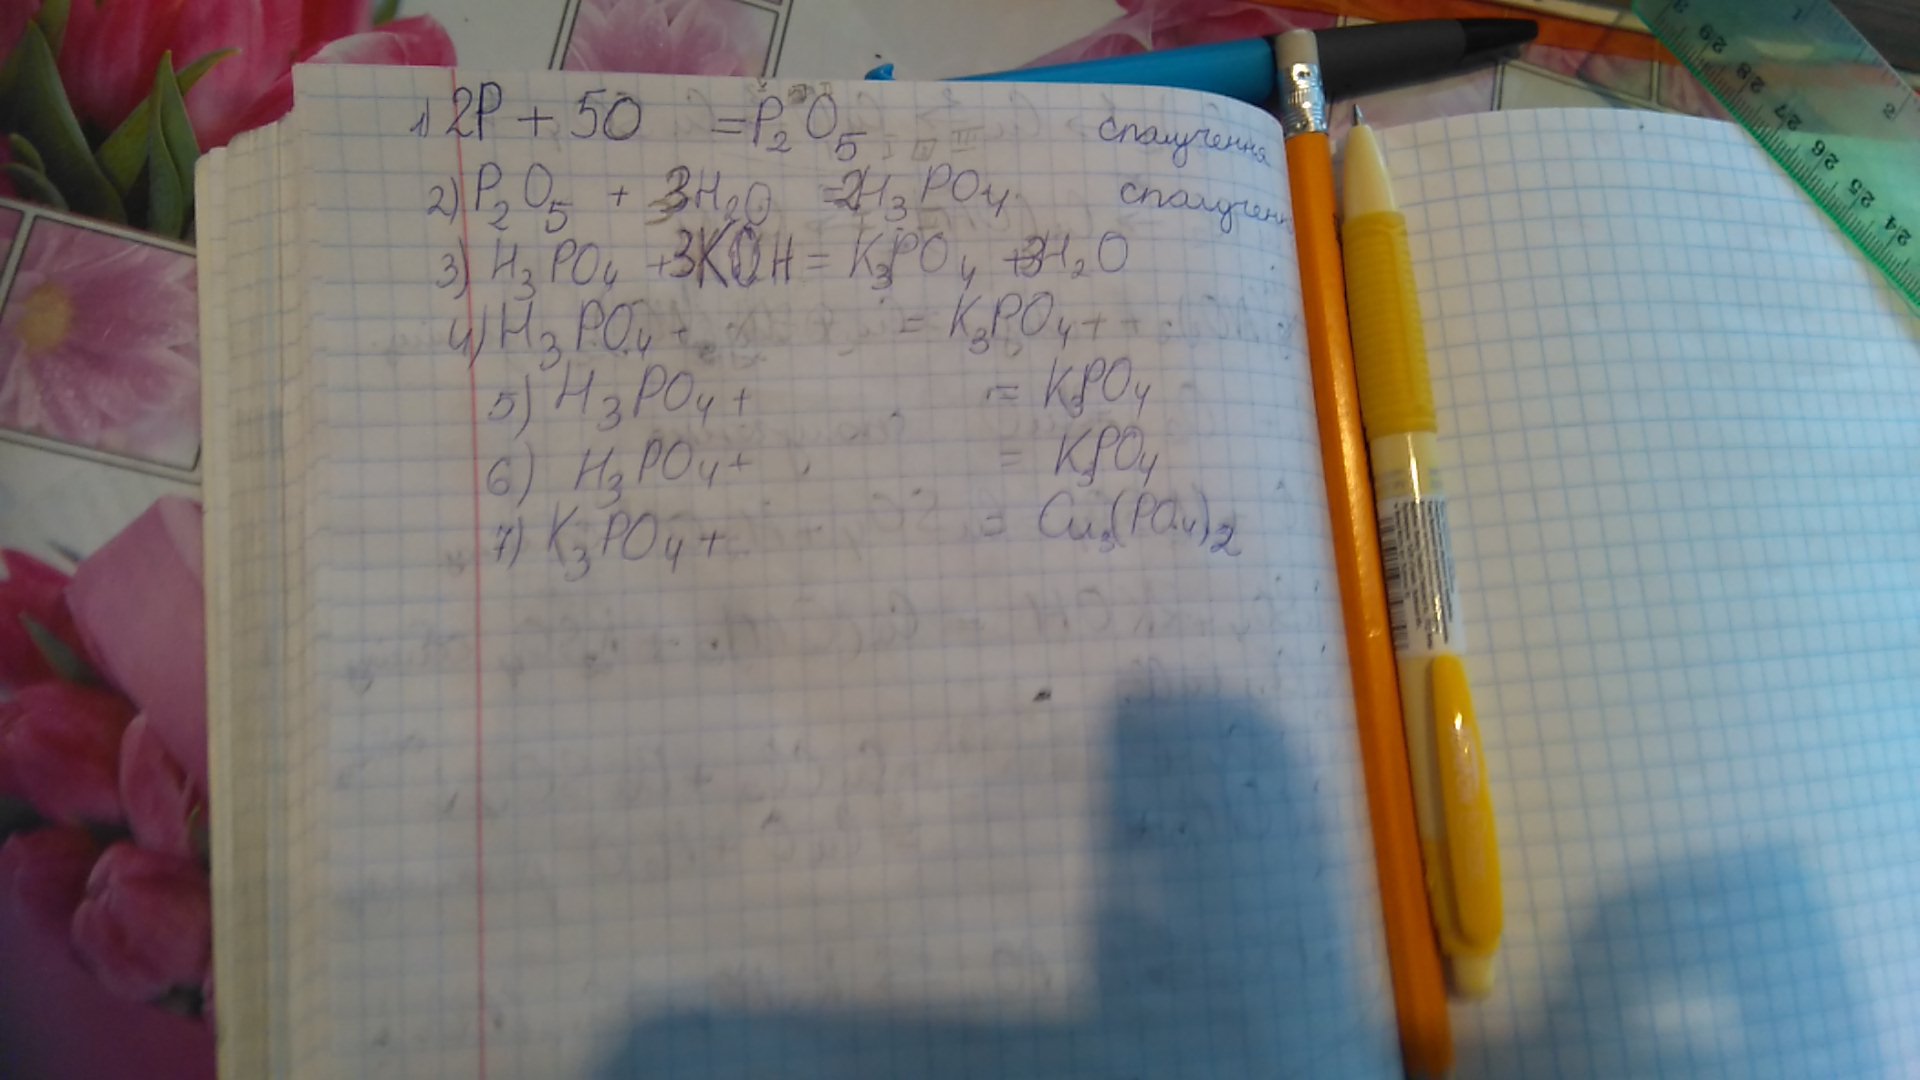 1) 2P + 5O = P₂O₅ сполучення
2) P₂O₅ + 3H₂O = 2H₃PO₄ сполученн
3) H₃PO₄ + 3KOH = K₃PO₄ + 3H₂O
4) H₃PO₄ + = K₃PO₄ +
5) H₃PO₄ + = K₃PO₄
6) H₃PO₄ + = K₃PO₄
7) K₃PO₄ + = Cu₃(PO₄)₂
29 28 27 26 25 24